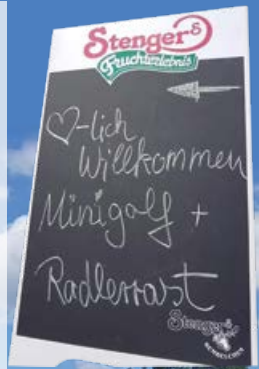 Stengers
Fruchterlebnis
♡-lich
Willkommen
Minigolf +
Radlerrast
Stenger's